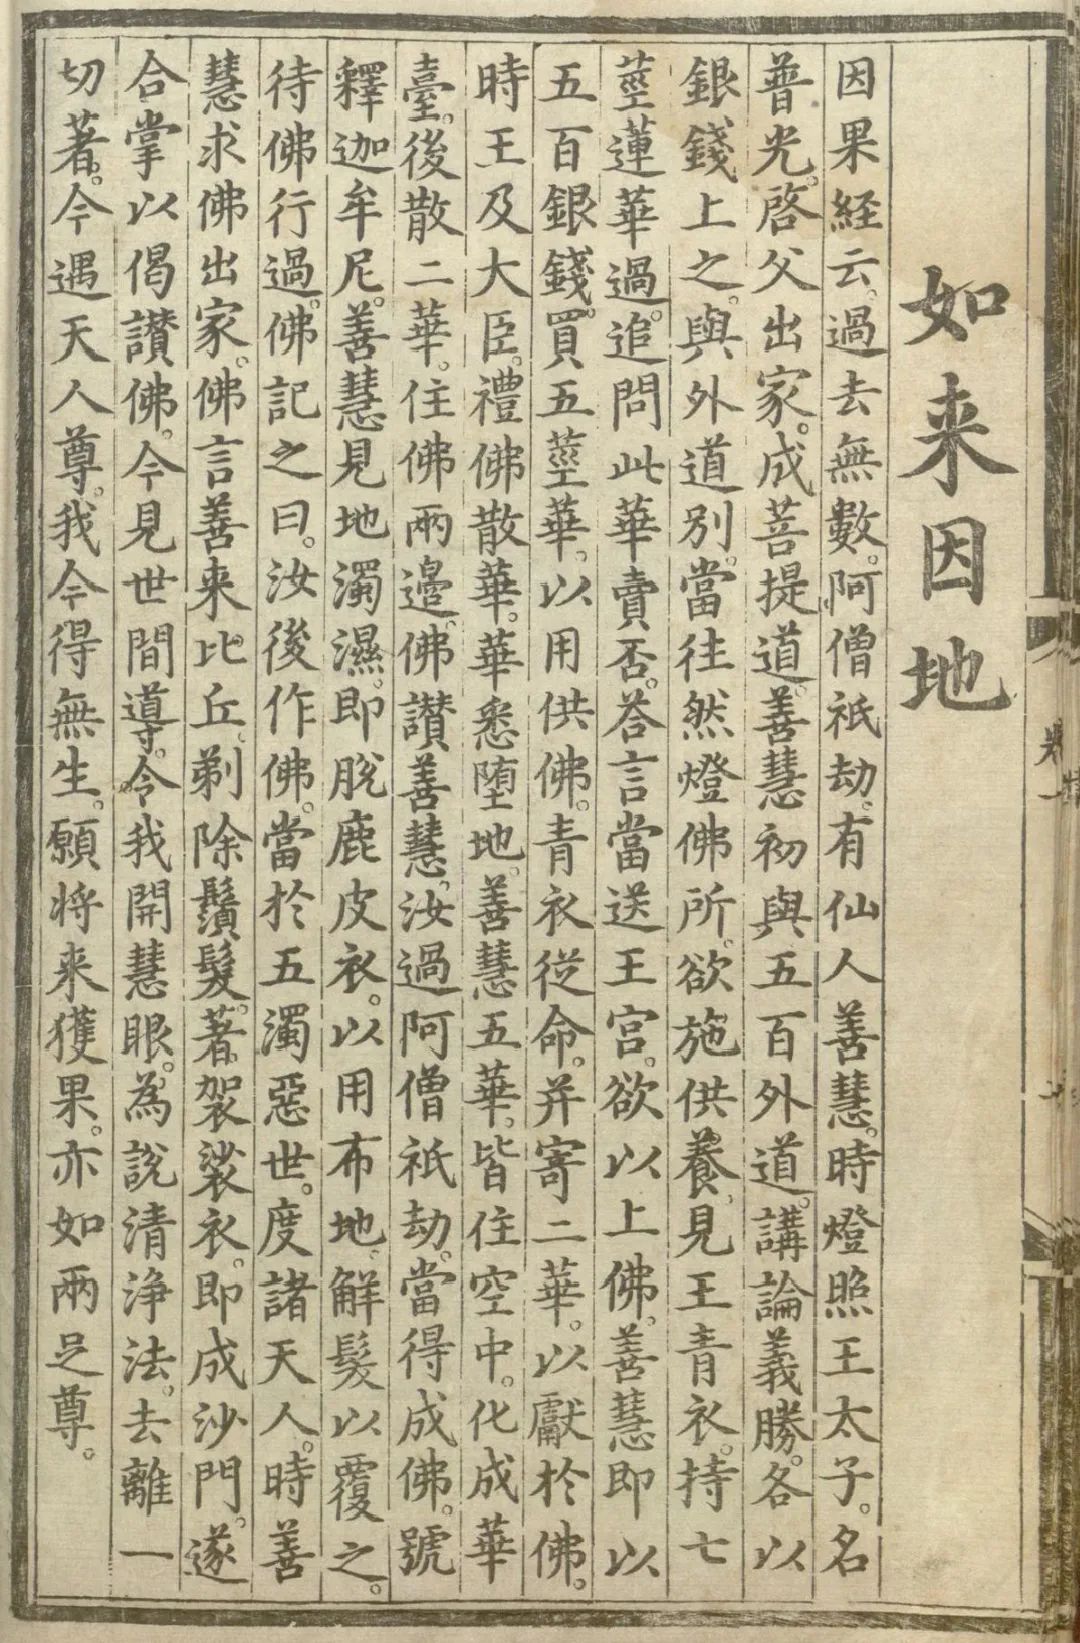 如来因地
因果経云。過去無數。阿僧祇劫。有仙人善慧。時燈照王太子。名
普光。啓父出家。成菩提道。善慧初與五百外道。講論義勝。各以
銀錢上之。與外道別。當往然燈佛所。欲施供養。見王青衣。持七
莖蓮華過。追問此華賣否。荅言當送王宮。欲以上佛。善慧即以
五百銀錢。買五莖華。以用供佛。青衣從命。并寄二華。以獻於佛。
時王及大臣。禮佛散華。華悉墮地。善慧五華。皆住空中。化成華
臺。後散二華。住佛兩邊。佛讃善慧。汝過阿僧祇劫。當得成佛。號
釋迦牟尼。善慧見地濁濕。即脫鹿皮衣。以用布地。解髮以覆之。
待佛行過。佛記之曰。汝後作佛。當於五濁惡世。度諸天人。時善
慧求佛出家。佛言善来比丘。剃除鬚髮。著袈裟衣。即成沙門。遂
合掌以偈讃佛。今見世間導。令我開慧眼。為說清淨法。去離一
切著。今遇天人尊。我今得無生。願将来獲果。亦如兩足尊。
卷一